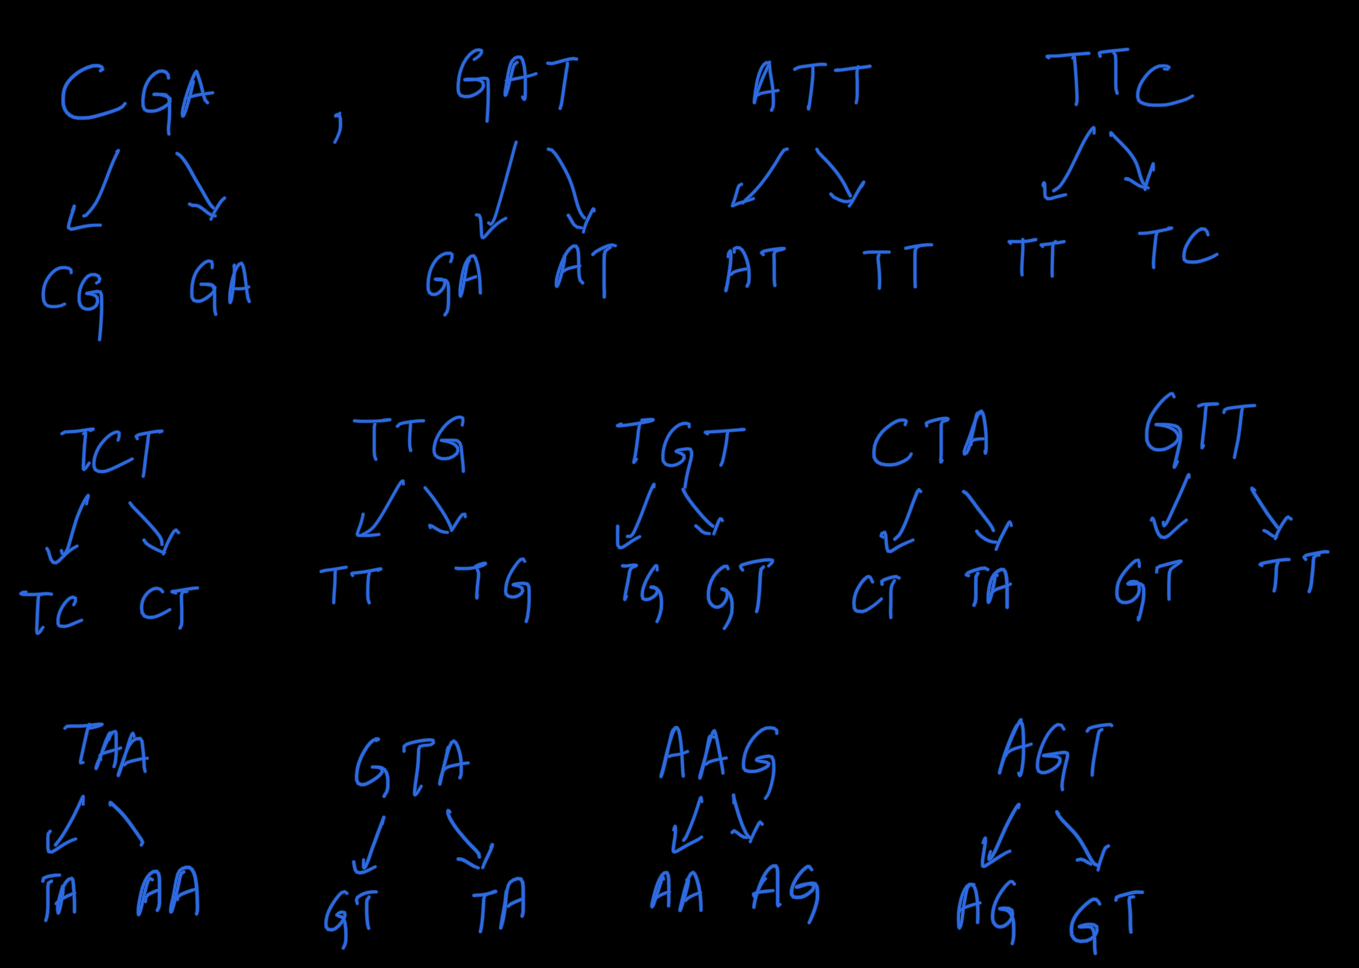 CGA , GAT ATT TTC
CG GA GA AT AT TT TT TC
TCT TTG TGT CTA GTT
TC CT TT TG TG GT CT TA GT TT
TAA GTA AAG AGT
TA AA GT TA AA AG AG GT